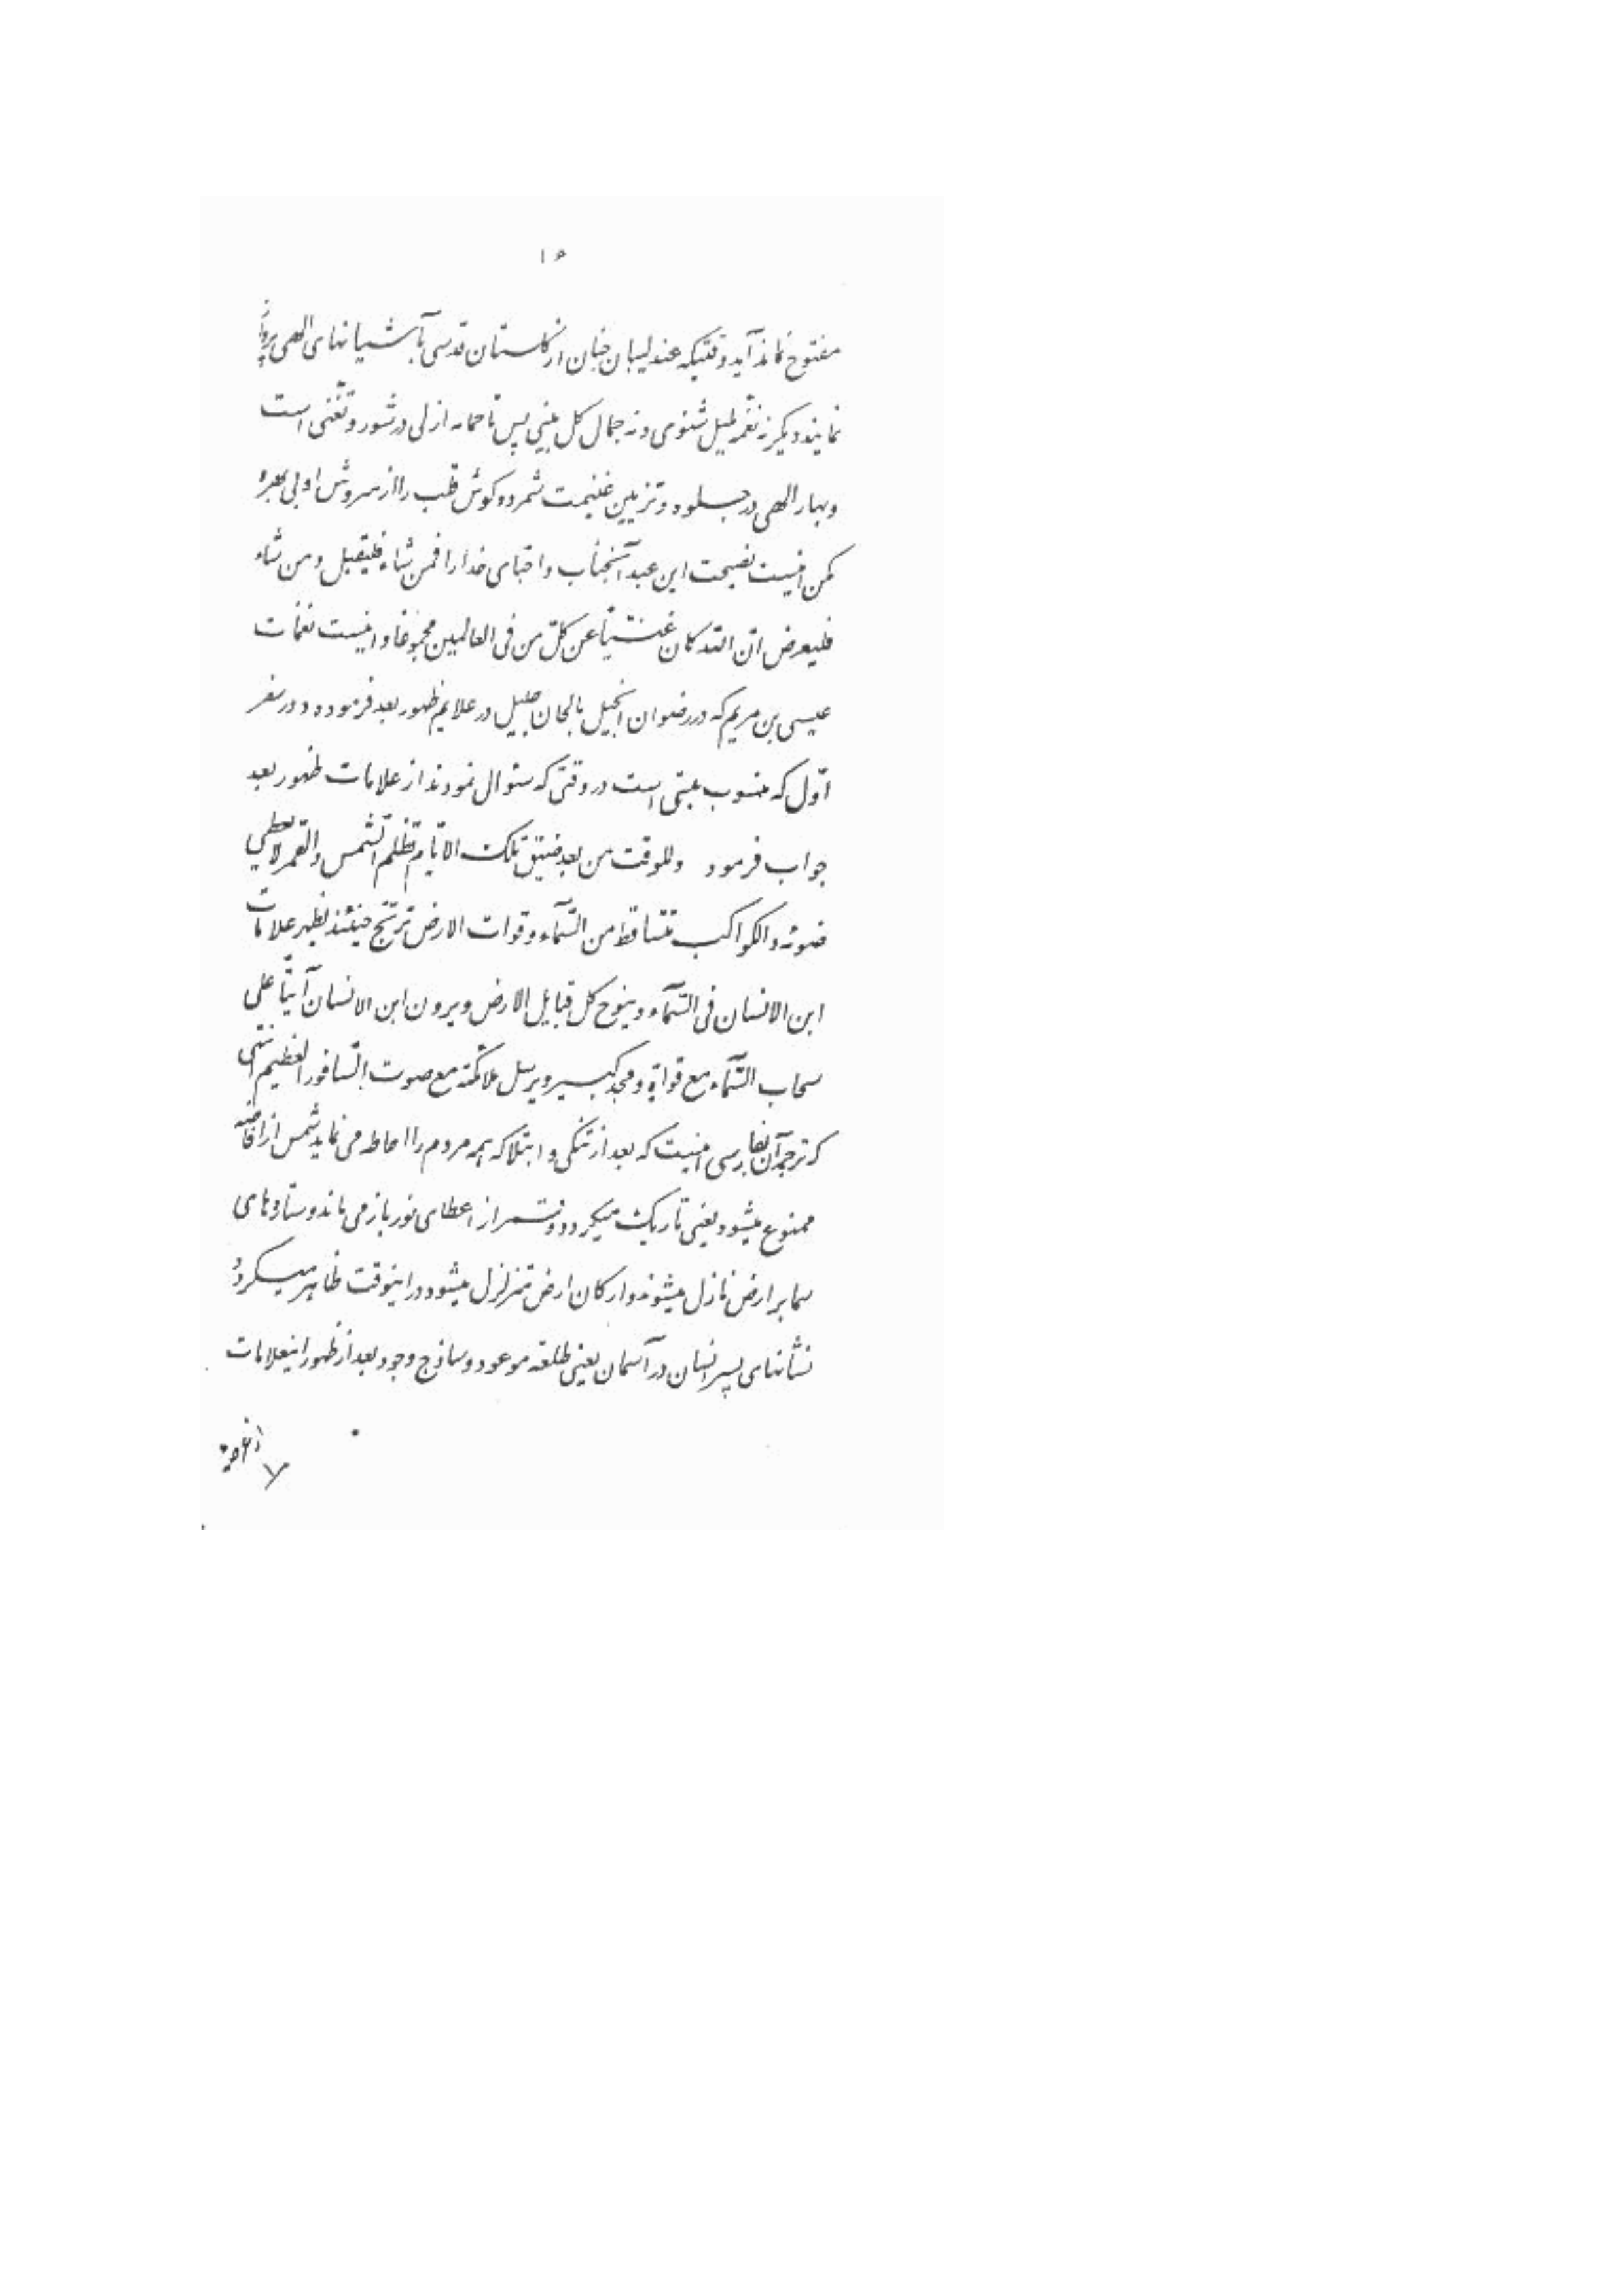 ۱۵
مفتوح نماند آید وقتیکه عندلیبان جنان از گلستان قدسی بآشیانهای الهی پرواز
نمایند دیگر نه نغمه بلبل شنوی و نه جمال گل بینی پس تا حمامه ازلی در شور و تغنی است
و بهار الهی در جلوه و تزیین غنیمت شمرده گوش قلب را از سروش او بی بهره
مکن اینست نصیحت این عبد آنجناب و احبای خدا را فمن شاء فلیقبل و من شاء
فلیعرض انّ اللّه کان غنیّاً عن کلّ من فی العالمین و اینست نغمات
عیسی بن مریم که در رضوان انجیل بالحان جلیل در علایم ظهور بعد فرموده و در سفر
اوّل که منسوب بمتی است در وقتی که سئوال نمودند از علامات ظهور بعد
جواب فرمود وللوقت من بعد ضیق تلک الایّام تظلم الشّمس والقمر لایعطی
ضوئه والکواکب تتساقط من السّمآء و قوات الارض ترتجّ حینئذ یظهر علامات
ابن الانسان فی السّمآء و ینوح کل قبایل الارض و یرون ابن الانسان آتیاً علی
سحاب السّمآء مع قواة و مجد کبیر و یرسل ملائکته مع صوت السّافور العظیم انتهی
که ترجمه آن بفارسی اینست که بعد از تنگی و ابتلا که همه مردم را احاطه می نماید شمس از افاضه
ممنوع میشود یعنی تاریک میگردد و قمر از اعطای نور باز می ماند و ستاره های
سما بر ارض نازل میشوند و ارکان ارض متزلزل میشود در اینوقت ظاهر میگردد
نشانهای پسر انسان در آسمان یعنی طلعة موعود و ساذج وجود بعد از ظهور اینعلامات